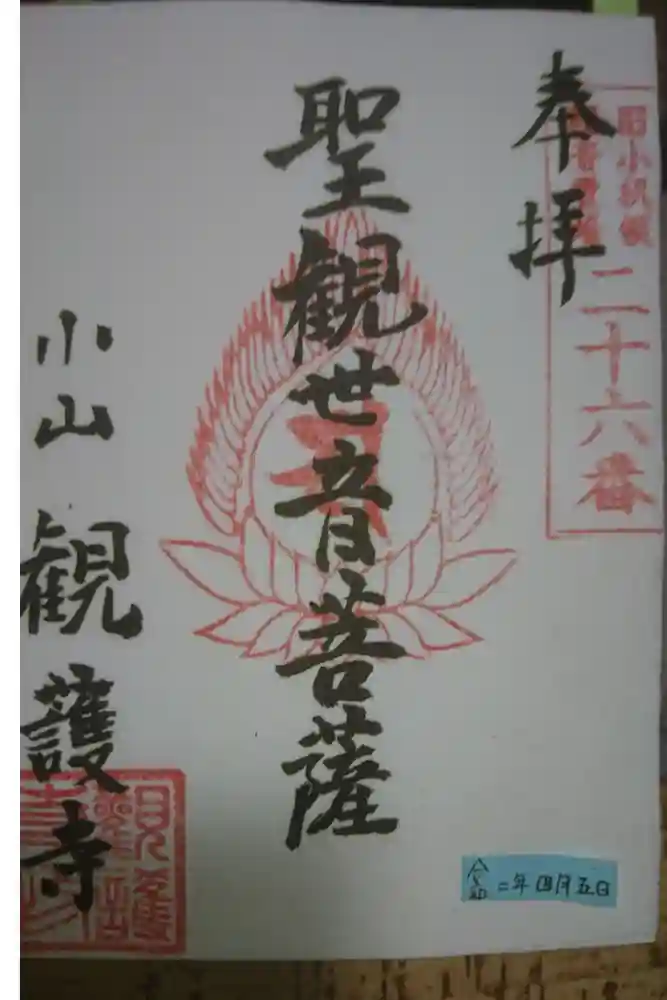 奉拝
二十六番
聖観世音菩薩
小山 観護寺
令和二年四月五日